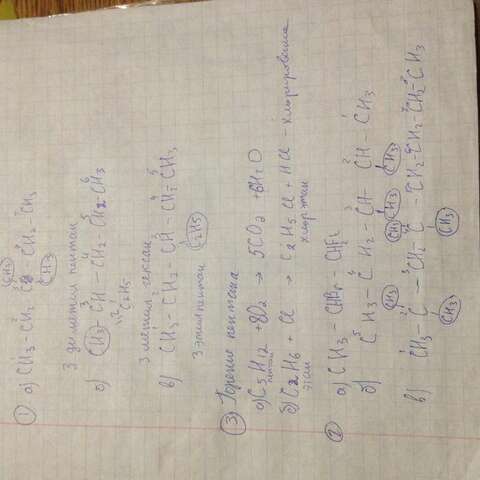 CH3
1) а) CH3 - CH2 C - CH2 - CH3
CH3
3 диметил пентан
б) CH3 - CH - CH2 - CH2 - CH3
C2H5
3 метил гексан
в) CH3 - CH2 - CH - CH2 - CH3
3 этилпентан C2H5
3) Горение пентана
а) C5H12 + 8O2 → 5CO2 + 6H2O
пентан
б) C2H6 + Cl → C2H5Cl + HCl - хлорирование
этан хлорэтан
2) а) CH3 - CHBr -
б) CH3 - CH2 - CH - CH - CH3
CH3 CH3 CH3 CH3
в) CH3 - C - CH2 - C - CH2 - CH2 - CH2 - CH3
CH3 CH3